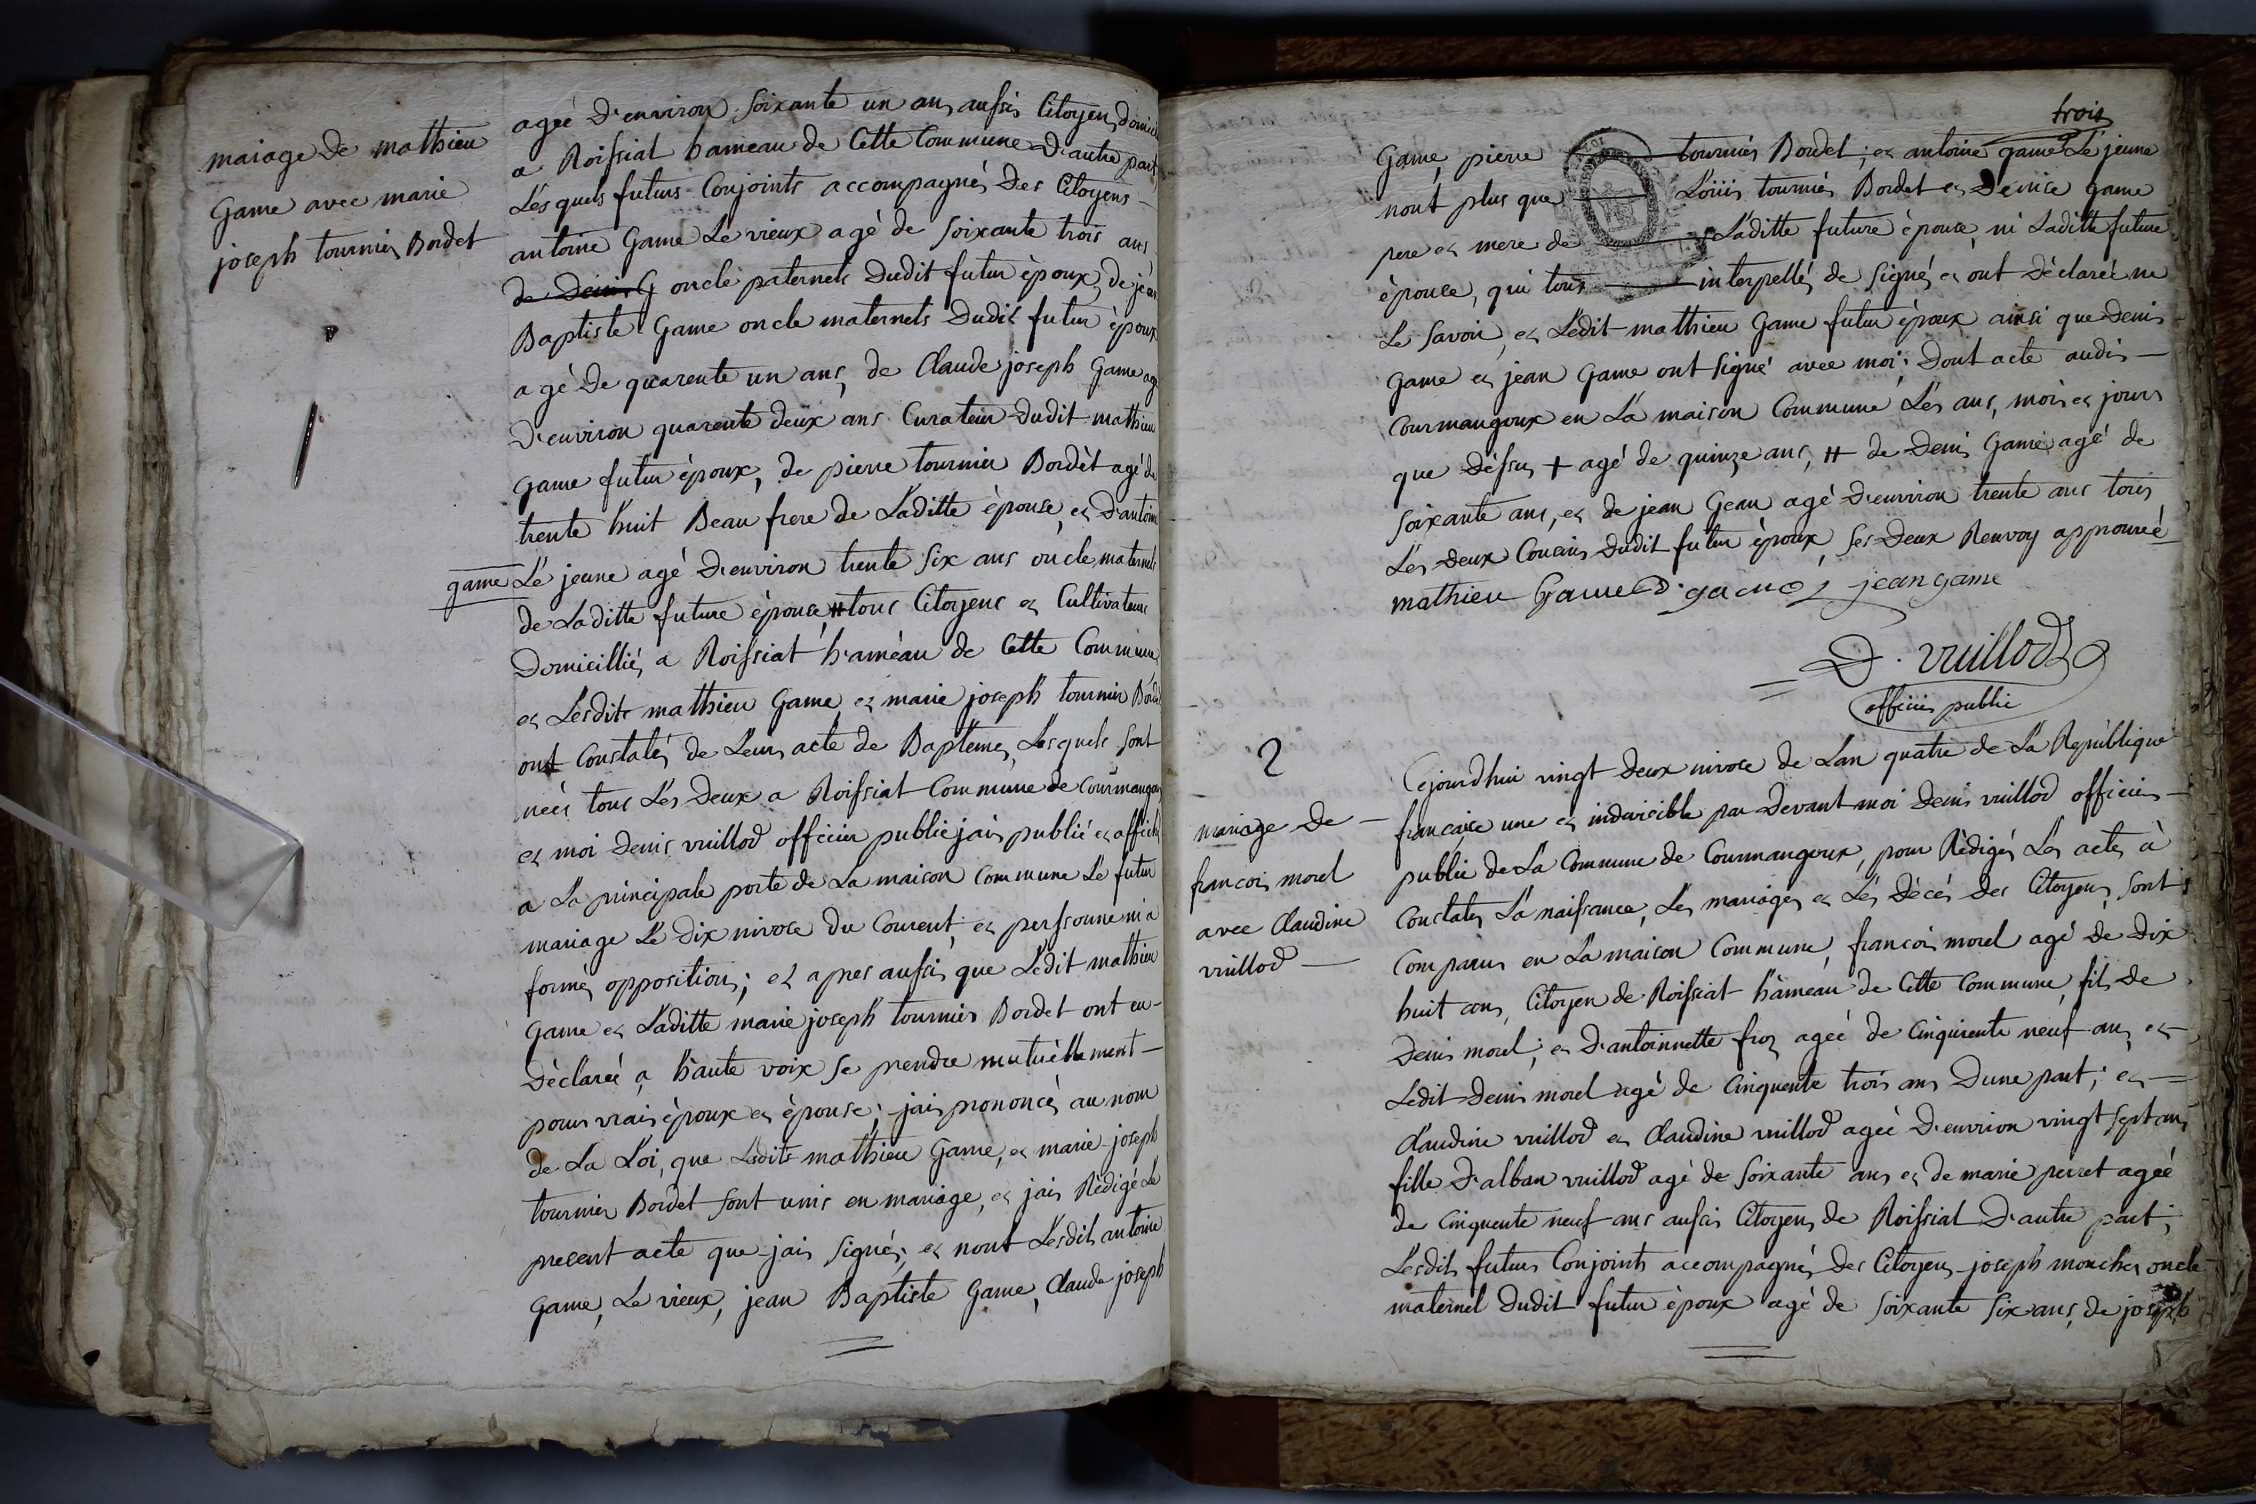 mariage de mathieu
Game avec marie
joseph tournier Bordet
agée D'environ soixante un ans aussi Citoyens domici
a Roissiat hameau de Cette Commune D'autre part
Lésquels futurs Conjoints accompagnés Des Citoyens
antoine Game Le vieux agé de soixante trois ans
oncle paternels Dudit futur époux, de jean
Baptiste Game oncle maternels Dudit futur époux
agé De quarente un ans, de Claude joseph Game agé
D'environ quarente deux ans Curateur Dudit mathieu
Game futur époux, de pierre tournier Bordèt agé de
trente huit Beau frere de Laditte épouse, et D'antoine
game Lé jeune agé D'environ trente six ans oncle maternels
de Laditte future épouse, # tous Citoyens et Cultivateurs
Domicilliés a Roissiat haméau de Cette Commune
et Lésdits mathieu Game et marie joseph tournier Bordet
ont Constatés de Leurs acte de Baptemes, Lesquels sont
neés tous Lés Deux a Roissiat Commune de Courmangoux
et moi Denis vuillod officier public jais publié et affiché
a La principale porte de La maison Commune Lé futur
mariage Lé dix nivose du Courent et perssonne n'a
formés opposition; et apres aussi que Lédit mathieu
Game et Laditte marie joseph tournier Bordet ont eu
Déclareé a haute voix se prendre mutuéllement
pours vrais époux et épouse; jais prononcés au nom
de La Loi, que Lédits mathieu Game, et marie joseph
tournier Bordet sont unis en mariage, et jais Rédigé Le
present acte que jais Signés, et nont Lésdits antoine
Game, Le vieux, jean Baptiste Game, Claude joseph
trois
Game, pierre tournier Bordet; et antoine game Lé jeune
nont plus que Louis tournier Bordet et Denise game
pere et mere de Laditte future épouse, ni Laditte future
épouse, qui tous interpellés de signés et ont Déclareé ne
Le savoir, et Lédit mathieu Game futur époux ainsi que Denis
Game et jean Game ont signé avec moi; Dont acte audis
Courmangoux en La maison Commune Lés ans, mois et jours
que Déssus + agé de quinze ans, # de Denis Game agé de
soixante ans, et de jean Geau agé D'environ trente ans tous
Lés Deux Cousins Dudit futur époux, ses Deux Renvoy approuvé
mathieu Game D. game jean game
D. vuillod
officier public
2
mariage De
francois morel
avec Claudine
vuillod
Cejourdhui vingt Deux nivose de Lan quatre de La République
française une et indivisible par Devant moi Denis vuillod officier
public de La Commune de Courmangoux, pour Rédigés Lés actes à
Constater La naissance, Les mariages et Lés Décés des Citoyens, sont
Comparus en La maison Commune, francois morel agé De Dix
huit ans, Citoyen de Roissiat hameau de Cette Commune, fils de
Denis morel; et D'antoinnette froz agéé de Cinquente neuf ans, et
Ledit Denis morel agé de Cinquente trois ans Dune part; et
Claudine vuillod et Claudine vuillod agéé D'environ vingt sept ans
fille D'alban vuillod agé de soixante ans et de marie perret agéé
de Cinquente neuf ans aussi Citoyens de Roissiat D'autre part;
Lésdits futurs Conjoints accompagnés Des Citoyens joseph moncher oncle
maternel Dudit futur époux agé de soixante six ans, de joseph